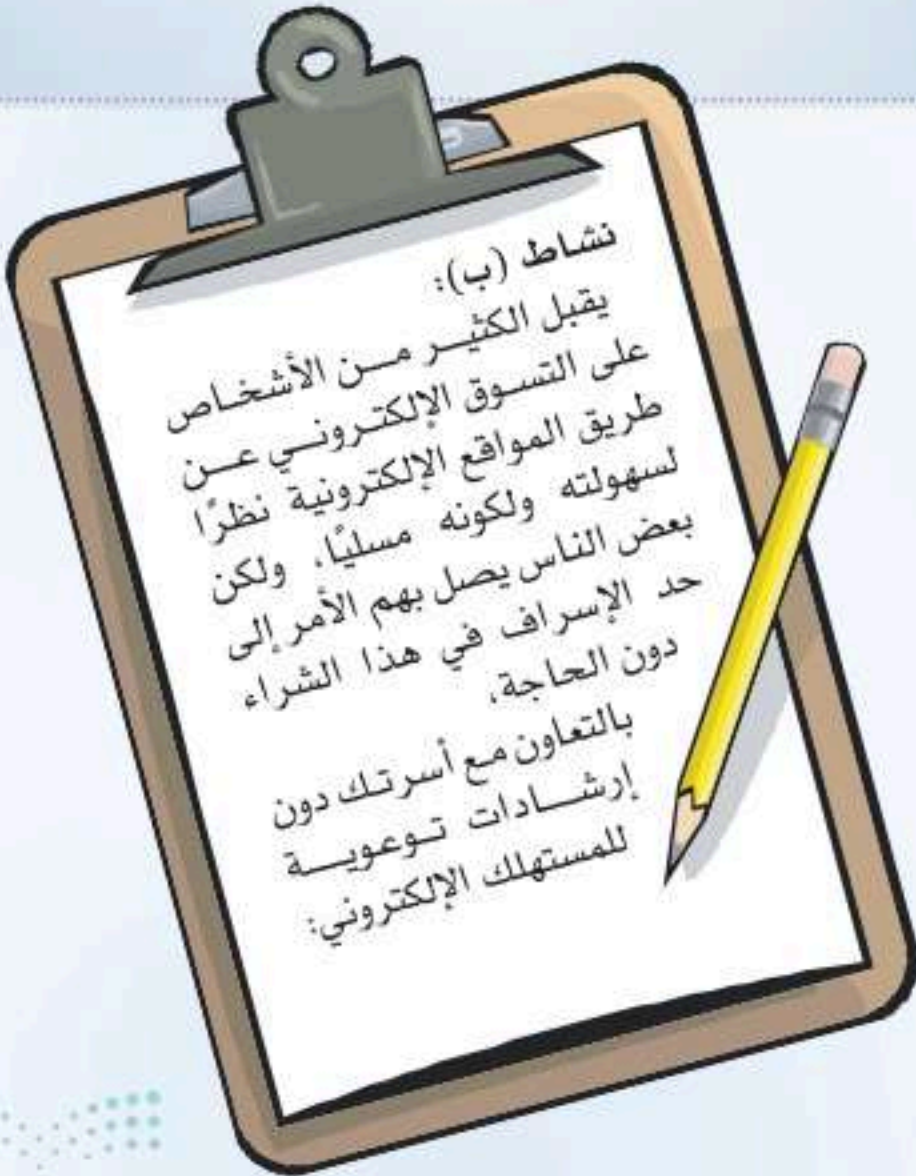 نشاط (ب):
يقبل الكثيــر مــن الأشخــاص
على التســوق الإلكتــرونــي عــن
طريق المواقع الإلكترونية نظرًا
لسهولته ولكونه مسليًا، ولكن
بعض الناس يصل بهم الأمر إلى
حد الإسراف في هذا الشراء
دون الحاجة،
بالتعاون مع أسرتك دون
إرشــــادات تــوعويــــة
للمستهلك الإلكتروني: